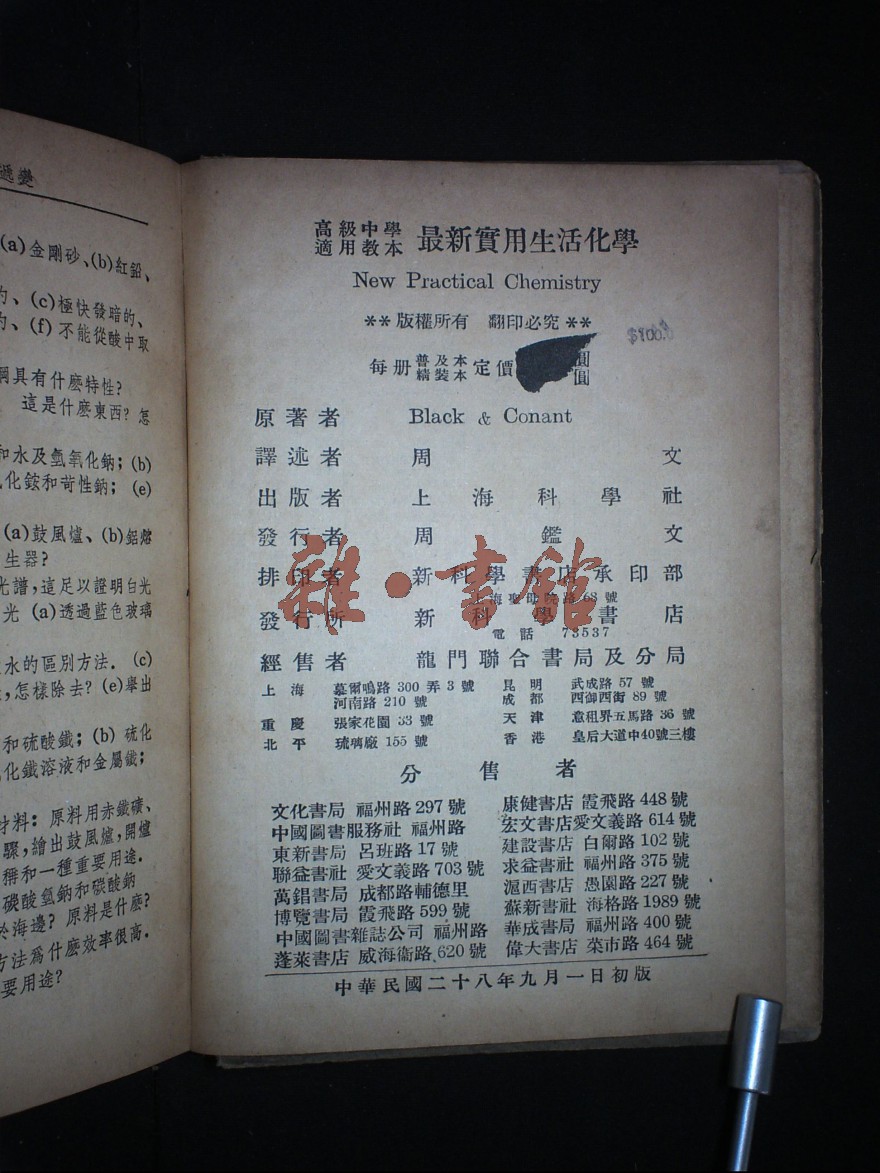 遞變
(a)金剛砂、(b)紅鉛、
的、(c)極快發暗的、
的、(f)不能從酸中取
鋼具有什麼特性?
這是什麼東西? 怎
和水及氫氧化鈉; (b)
化銨和苛性鈉; (e)
(a)鼓風爐、(b)鋁熔
生器?
光譜,這足以證明白光
光 (a)透過藍色玻璃
水的區別方法. (c)
,怎樣除去? (e)舉出
和硫酸鐵; (b) 硫化
化鐵溶液和金屬鐵;
材料: 原料用赤鐵礦、
驟,繪出鼓風爐,開爐
稱和一種重要用途.
碳酸氫鈉和碳酸鈉
於海邊? 原料是什麼?
方法爲什麼效率很高.
要用途?
高級中學
適用教本 最新實用生活化學
New Practical Chemistry
** 版權所有 翻印必究 **
$100.
每册 普及本 定價 圓
精裝本 圓
原著者 Black & Conant
譯述者 周文
出版者 上海科學社
發行者 周鑑文
排印者 新科學書店承印部
上海聖母院路68號
發行所 新科學書店
電話 73537
雜·書館
經售者 龍門聯合書局及分局
上海 慕爾鳴路 300 弄 3 號 昆明 武成路 57 號
河南路 210 號 成都 西御西街 89 號
重慶 張家花園 33 號 天津 意租界五馬路 36 號
北平 琉璃廠 155 號 香港 皇后大道中40號三樓
分售者
文化書局 福州路 297 號 康健書店 霞飛路 448 號
中國圖書服務社 福州路 宏文書店愛文義路 614 號
東新書局 呂班路 17 號 建設書店 白爾路 102 號
聯益書社 愛文義路 703 號 求益書社 福州路 375 號
萬錩書局 成都路輔德里 滬西書店 愚園路 227 號
博覽書局 霞飛路 599 號 蘇新書社 海格路 1989 號
中國圖書雜誌公司 福州路 華成書局 福州路 400 號
蓬萊書店 威海衞路 620 號 偉大書店 菜市路 464 號
中華民國二十八年九月一日初版